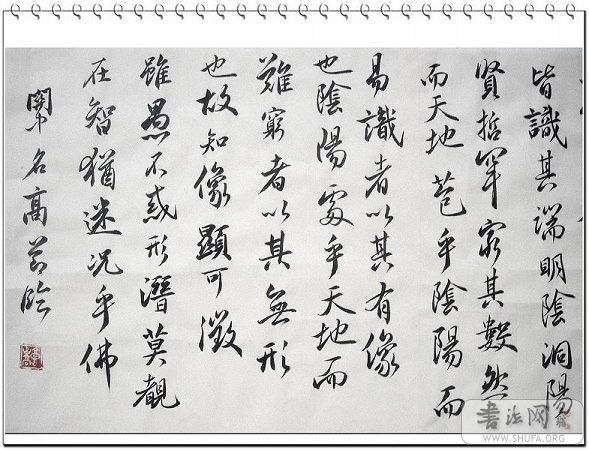 皆識其端明陰洞陽
賢哲罕窮其數然
而天地苞乎陰陽而
易識者以其有像
也陰陽處乎天地而
難窮者以其無形
也故知像顯可徵
雖愚不惑形潛莫覩
在智猶迷況乎佛
名高臨
書法网
WWW.SHUFA.ORG